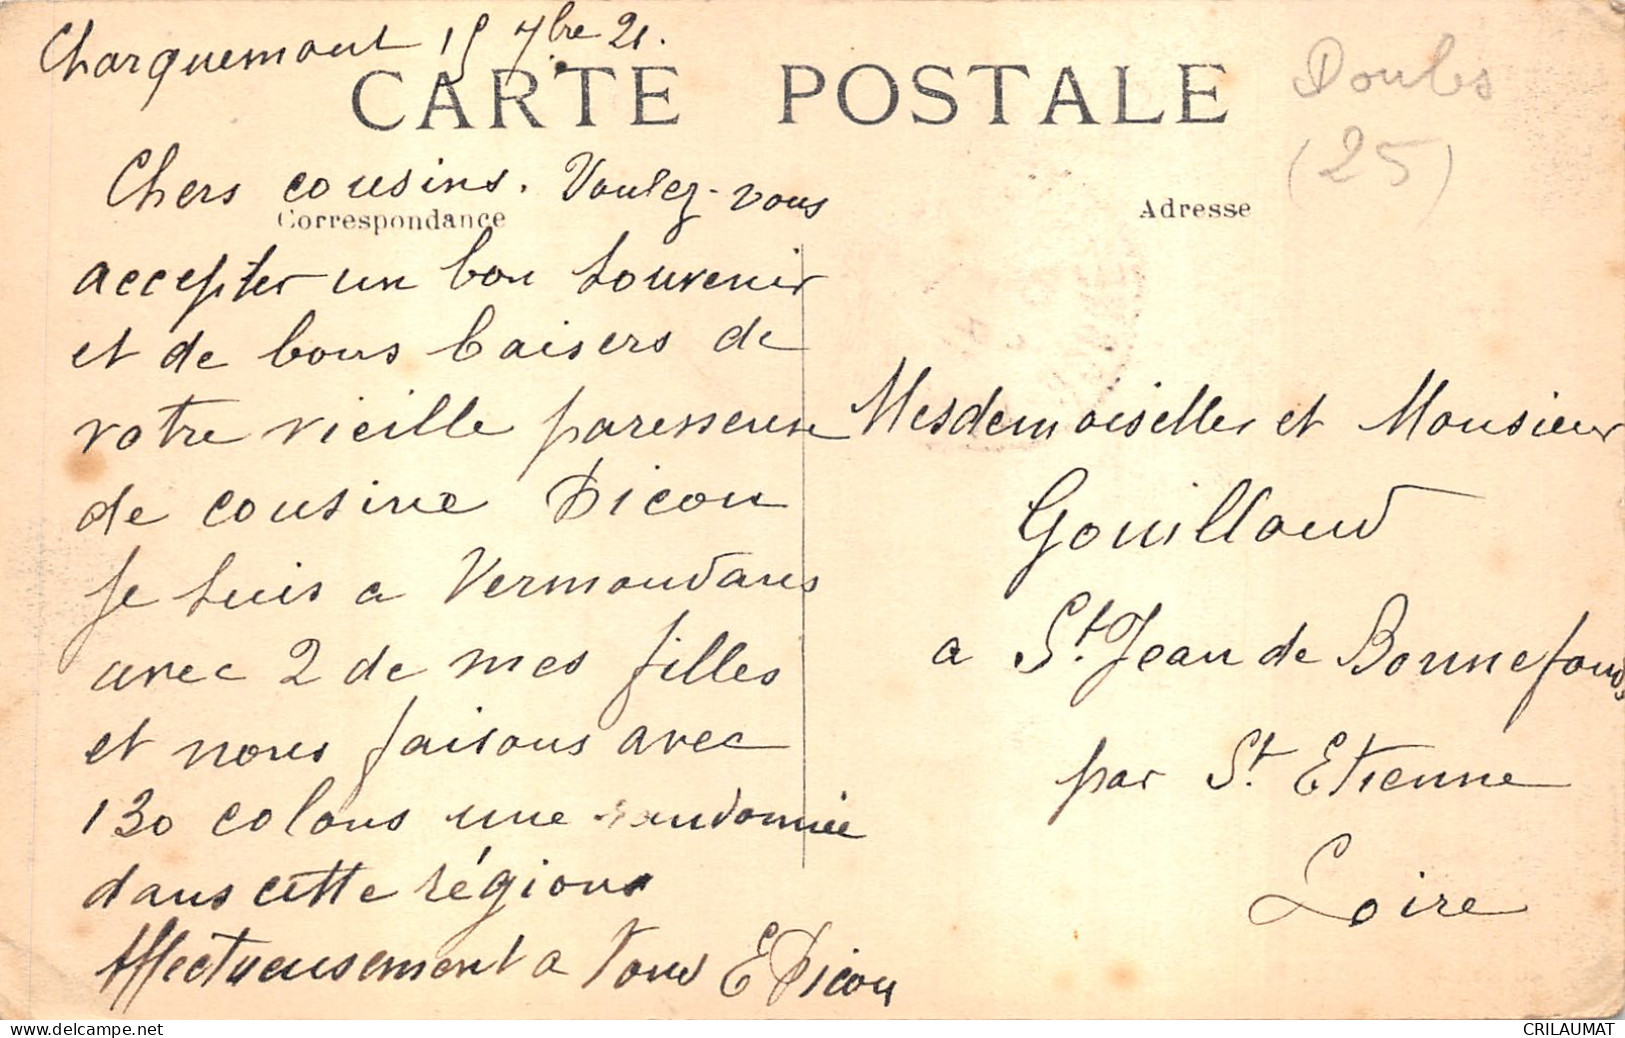 Charquemont 15 7bre 21.
CARTE POSTALE
Doubs
(25)
Chers cousins. Voulez-vous
Correspondance
Adresse
accepter un bon souvenir
et de bons baisers de
votre vieille paresseuse
de cousine Dicon
Je suis a Vermondans
avec 2 de mes filles
et nous faisons avec
130 colons une randonnée
dans cette région
Affectueusement a Tous E Dicon
Mesdemoiselles et Monsieur
Gouilloud
a St. Jean de Bonnefonds
par St. Etienne
Loire
CRILAUMAT